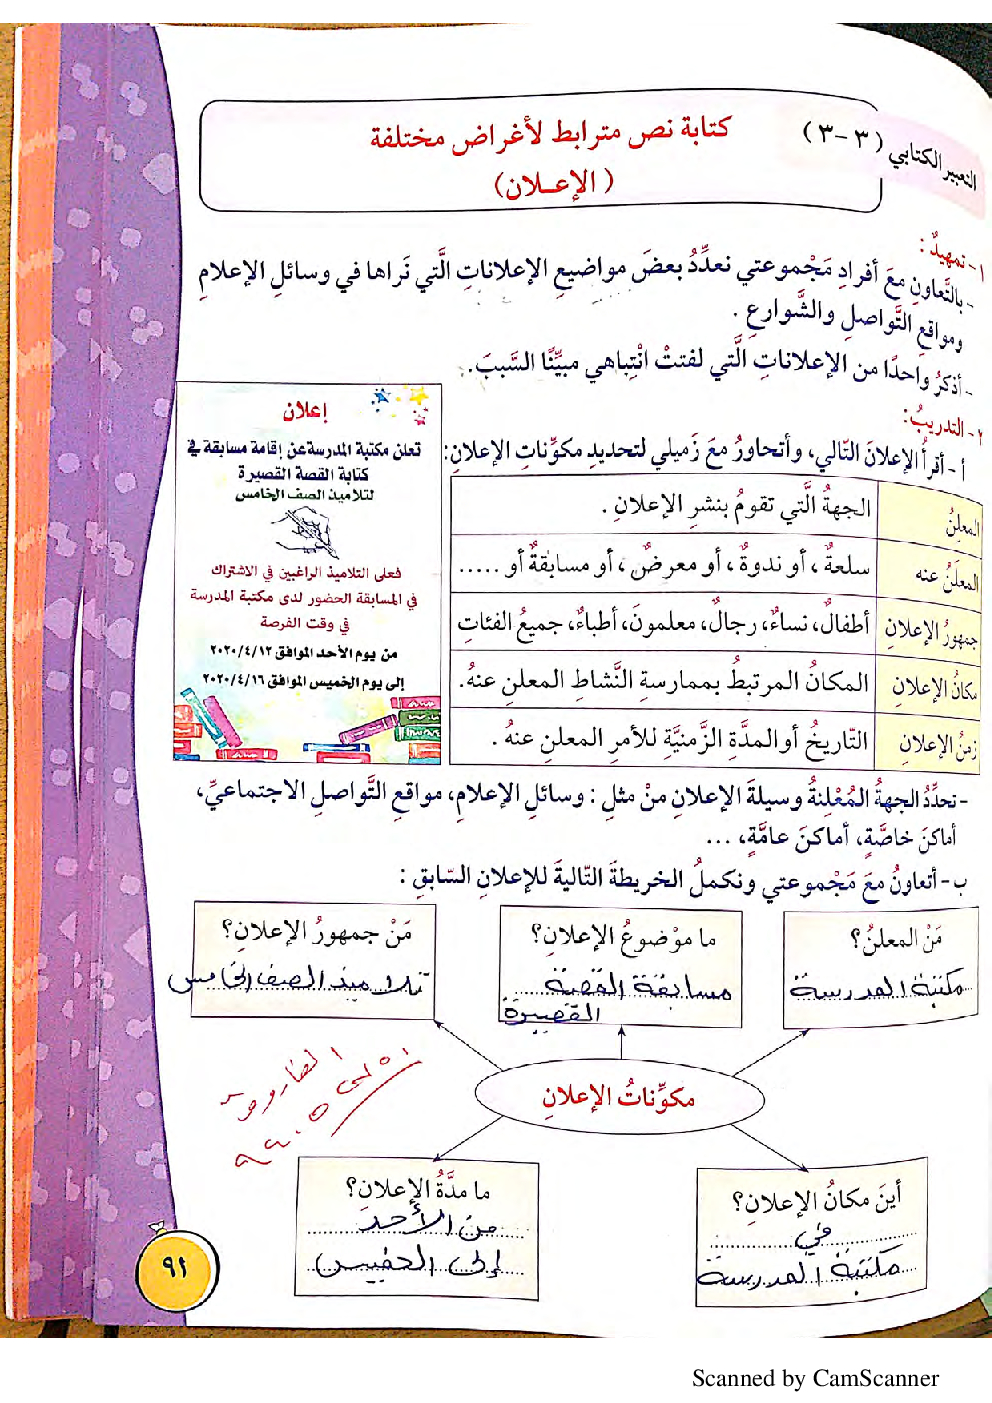 التعبير الكتابي (٣-٣)
كتابة نص مترابط لأغراض مختلفة
(الإعــلان)
١- تمهيدٌ:
- بالتَّعاونِ معَ أفرادِ مَجْموعتي نعدِّدُ بعضَ مواضيعِ الإعلاناتِ الَّتي نَراها في وسائلِ الإعلامِ
ومواقعِ التَّواصلِ والشَّوارعِ .
- أذكرُ واحدًا من الإعلاناتِ الَّتي لفتتْ انْتِباهي مبيِّنًا السَّببَ.
٢- التدريبُ:
أ- أقرأُ الإعلانَ التّالي، وأتحاورُ معَ زَميلي لتحديدِ مكوِّناتِ الإعلانِ:
المعلنُ
الجهةُ الَّتي تقومُ بنشرِ الإعلانِ .
المعلَنُ عنه
سلعةٌ ، أو ندوةٌ ، أو معرضٌ ، أو مسابقةٌ أو .....
جمهورُ الإعلانِ
أطفالٌ، نساءٌ، رجالٌ، معلمونَ، أطباءُ، جميعُ الفئاتِ
مكانُ الإعلانِ
المكانُ المرتبطُ بممارسةِ النَّشاطِ المعلنِ عنهُ.
زمنُ الإعلانِ
التّاريخُ أو المدَّةِ الزَّمنيَّةِ للأمرِ المعلنِ عنهُ .
إعلان
تعلن مكتبة المدرسة عن إقامة مسابقة في
كتابة القصة القصيرة
لتلاميذ الصف الخامس
فعلى التلاميذ الراغبين في الاشتراك
في المسابقة الحضور لدى مكتبة المدرسة
في وقت الفرصة
من يوم الأحد الموافق ٢٠٢٠/٤/١٢
إلى يوم الخميس الموافق ٢٠٢٠/٤/١٦
- تحدِّدُ الجهةُ المُعْلِنةُ وسيلةَ الإعلانِ مِنْ مثلِ : وسائلِ الإعلامِ، مواقعِ التَّواصلِ الاجتماعيِّ،
أماكنَ خاصَّةٍ، أماكنَ عامَّةٍ، ...
ب- أتعاونُ معَ مَجْموعتي ونكملُ الخريطةَ التّاليةَ للإعلانِ السّابقِ :
مَنْ المعلنُ؟
مكتبة المدرسة
ما موْضوعُ الإعلانِ؟
مسابقة القصة
القصيرة
مَنْ جمهورُ الإعلانِ؟
تلاميذ الصف الخامس
مكوِّناتُ الإعلانِ
أينَ مكانُ الإعلانِ؟
في
مكتبة المدرسة
ما مدَّةُ الإعلانِ؟
من الأحد
إلى الخميس
٩١
Scanned by CamScanner